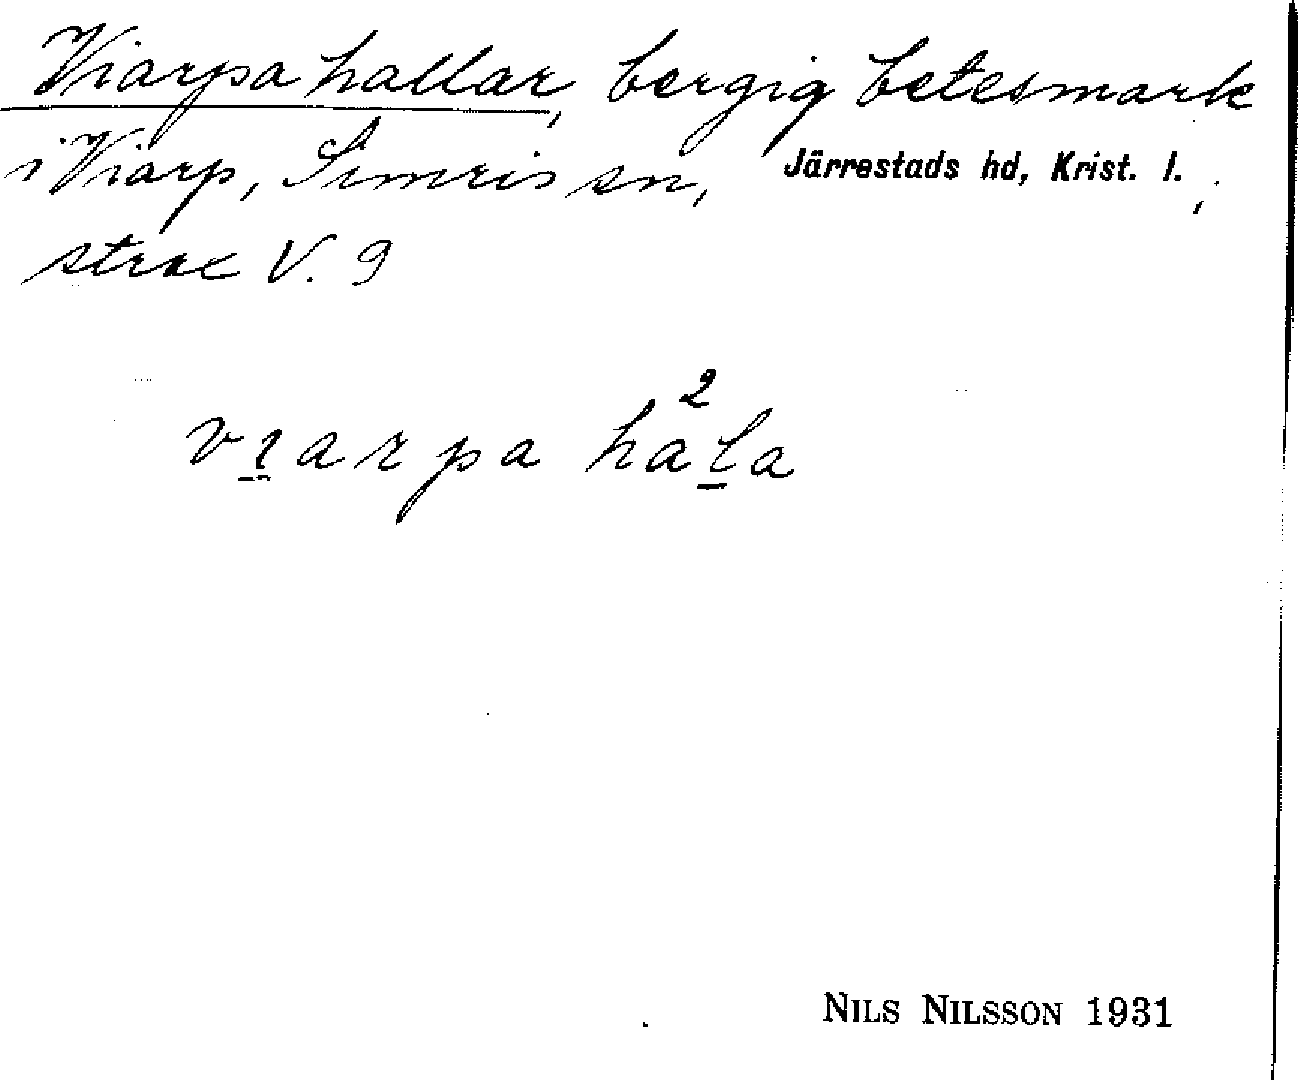 Viarpa hallar, bergig betesmark
i Viarp, Simris sn, Järrestads hd, Krist. l. ;
strax V. 9
vı̱arpa ha²ḻa
NILS NILSSON 1931